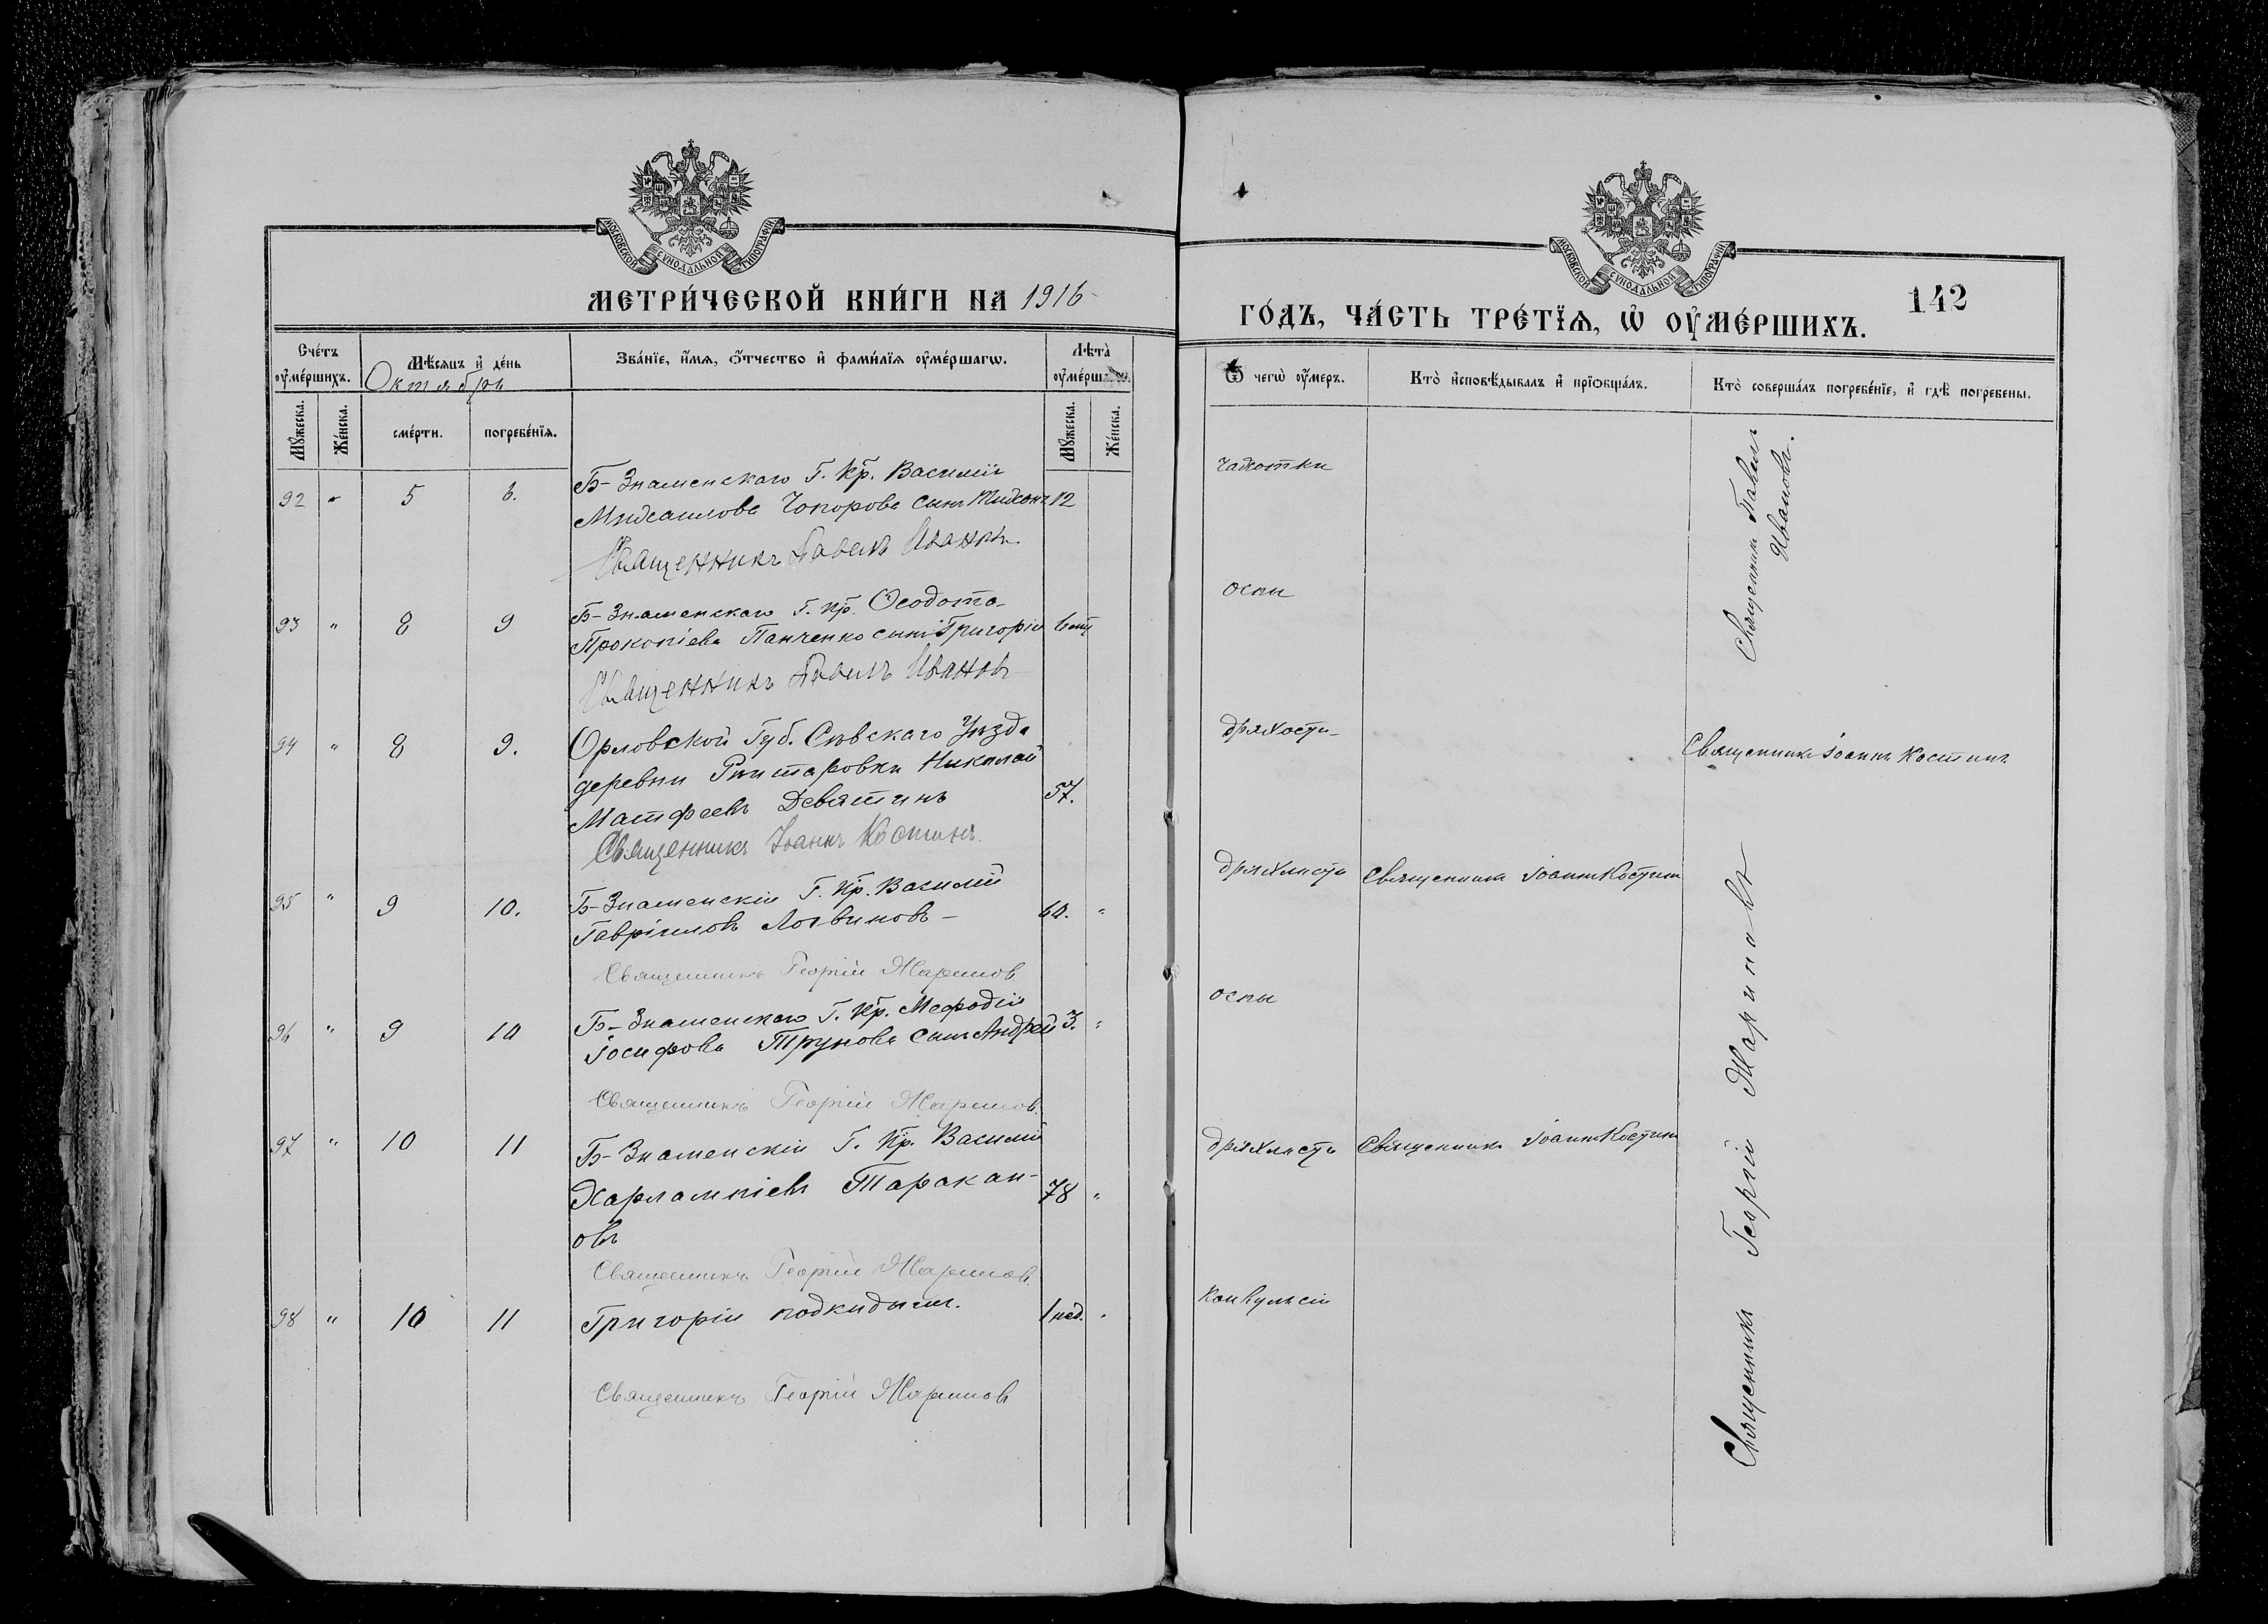 МОСКОВСКОЙ СУНОДАЛЬНОЙ ТИПОГРАФІИ
МЕТРИ́ЧЕСКОЙ КНИ́ГИ НА 1916
Сче́тъ оу҆ме́ршихъ.
Мѣ́сяцъ и҆ де́нь
Октябрь
Зва́нїе, и҆́мя, ѻ҆́тчество и҆ фами́лїя оу҆ме́ршагѡ.
Лѣ́та
Мꙋ́жеска.
Же́нска.
сме́рти.
погребе́нїя.
Мꙋ́жеска.
Же́нска.
92 " 5 6. Б-Знаменскаго Г. Кр. Василія
Чопорова сынъ 12
Священникъ Павелъ Ивановъ
93 " 8 9 Б-Знаменскаго Г. Кр. Ѳеодота
Прокопіева Панченко сынъ Григорій 6 мц
Священникъ Павелъ Ивановъ
94 " 8 9. Орловской Губ. Сѣвскаго Уѣзда
деревни Николай
Матфеевъ Девяткинъ 57.
Священникъ Іоаннъ Костинъ
95 " 9 10. Б-Знаменскій Г. Кр. Василій
Гавріиловъ Логвиновъ - 60. "
Священникъ Георгій Жариновъ
96 " 9 10 Б-Знаменскаго Г. Кр. Мефодія
Іосифова Трунова сынъ Андрей 3. "
Священникъ Георгій Жариновъ.
97 " 10 11 Б-Знаменскій Г. Кр. Василій
Харлампіевъ Таракан- 78 "
овъ
Священникъ Георгій Жариновъ.
98 " 10 11 Григорій подкидышъ. 1 нед. "
Священникъ Георгій Жариновъ
МОСКОВСКОЙ СУНОДАЛЬНОЙ ТИПОГРАФІИ
142
ГО́ДЪ, ЧА́СТЬ ТРЕ́ТЇЯ, Ѡ҆ ОУ҆МЕ́РШИХЪ.
Ѿ чегѡ̀ оу҆́меръ.
Кто̀ и҆сповѣ́дывалъ и҆ прїѡбща́лъ.
Кто̀ соверша́лъ погребе́нїе, и҆ гдѣ̀ погребены.
чахотки
Священникъ Павелъ
Ивановъ.
оспы
дряхлости
Священникъ Іоаннъ Костинъ
дряхлость Священникъ Іоаннъ Костинъ
оспы
дряхлость Священникъ Іоаннъ Костинъ
Конвульсіи
Священникъ Георгій Жариновъ